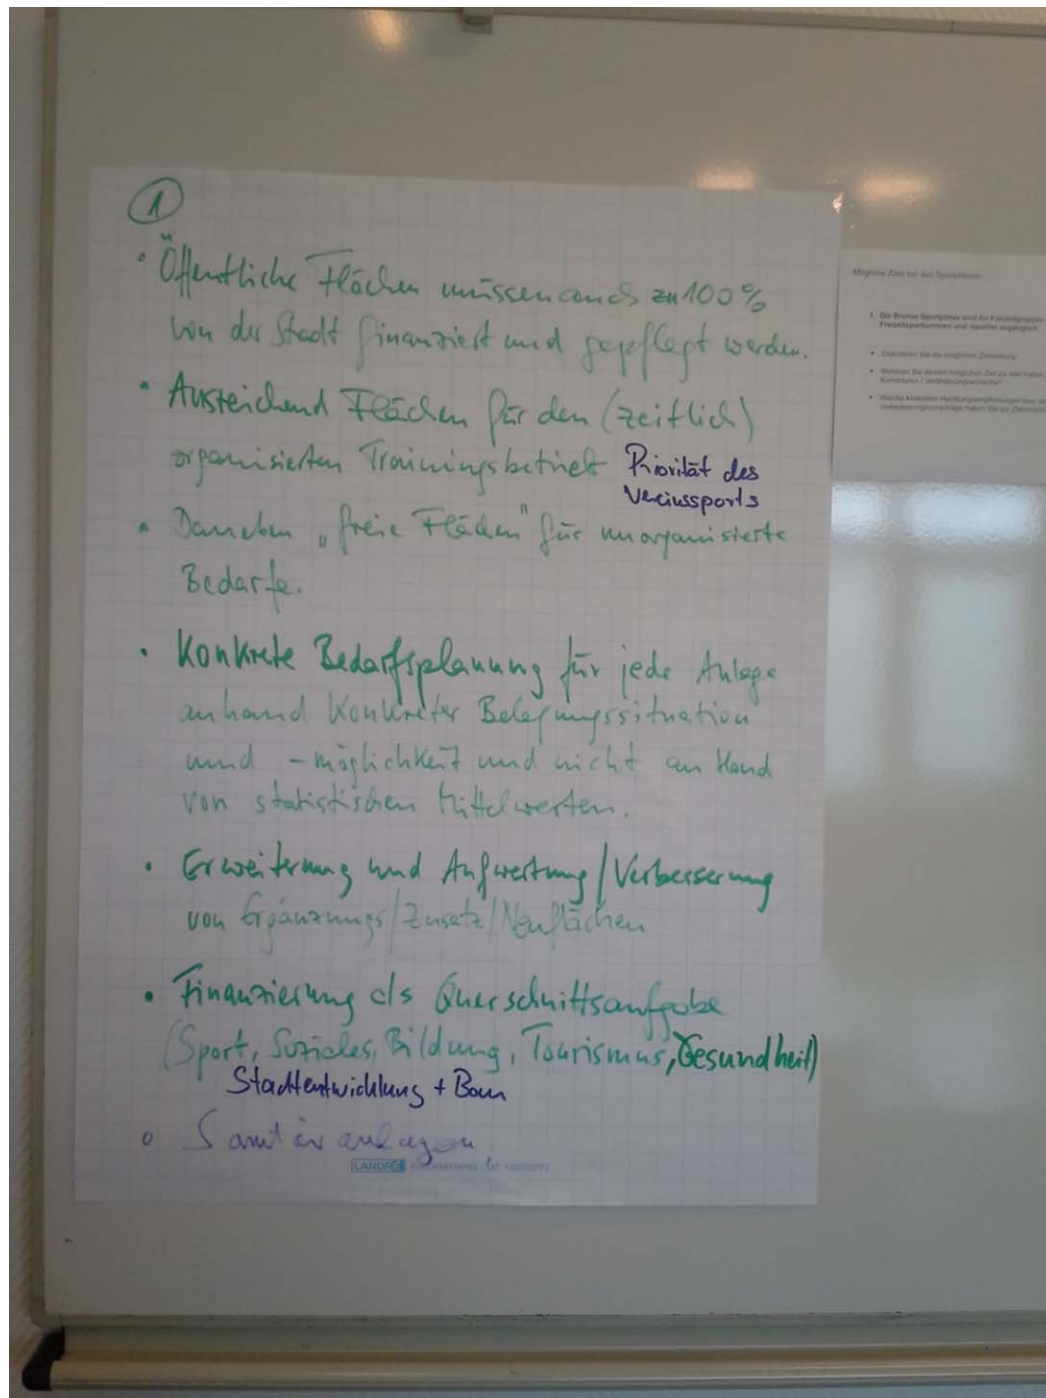 1
• Öffentliche Flächen müssen auch zu 100%
von der Stadt finanziert und gepflegt werden.
• Ausreichend Flächen für den (zeitlich)
organisierten Trainingsbetrieb Priorität des
Vereinssports
• Daneben „freie Flächen" für unorganisierte
Bedarfe.
• Konkrete Bedarfsplanung für jede Anlage
anhand Konkreter Belegungssituation
und -möglichkeit und nicht an Hand
von statistischen Mittelwerten.
• Erweiterung und Aufwertung/Verbesserung
von Ergänzungs/Zusatz/Neuflächen
• Finanzierung als Querschnittsaufgabe
(Sport, Soziales, Bildung, Tourismus, Gesundheit)
Stadtentwicklung + Bau
• Sanitäranlagen
LANDRÉ
Mögliche Ziele bei den Sportstätten
1. Die Bremer Sportplätze sind für Freizeitgruppen
Freizeitsportlerinnen und -sportler zugänglich
• Diskutieren Sie die mögliche Zielsetzung
• Stimmen Sie diesem möglichen Ziel zu oder haben
Korrekturen / Veränderungswünsche?
• Welche konkreten Handlungsempfehlungen
Verbesserungsvorschläge haben Sie zur